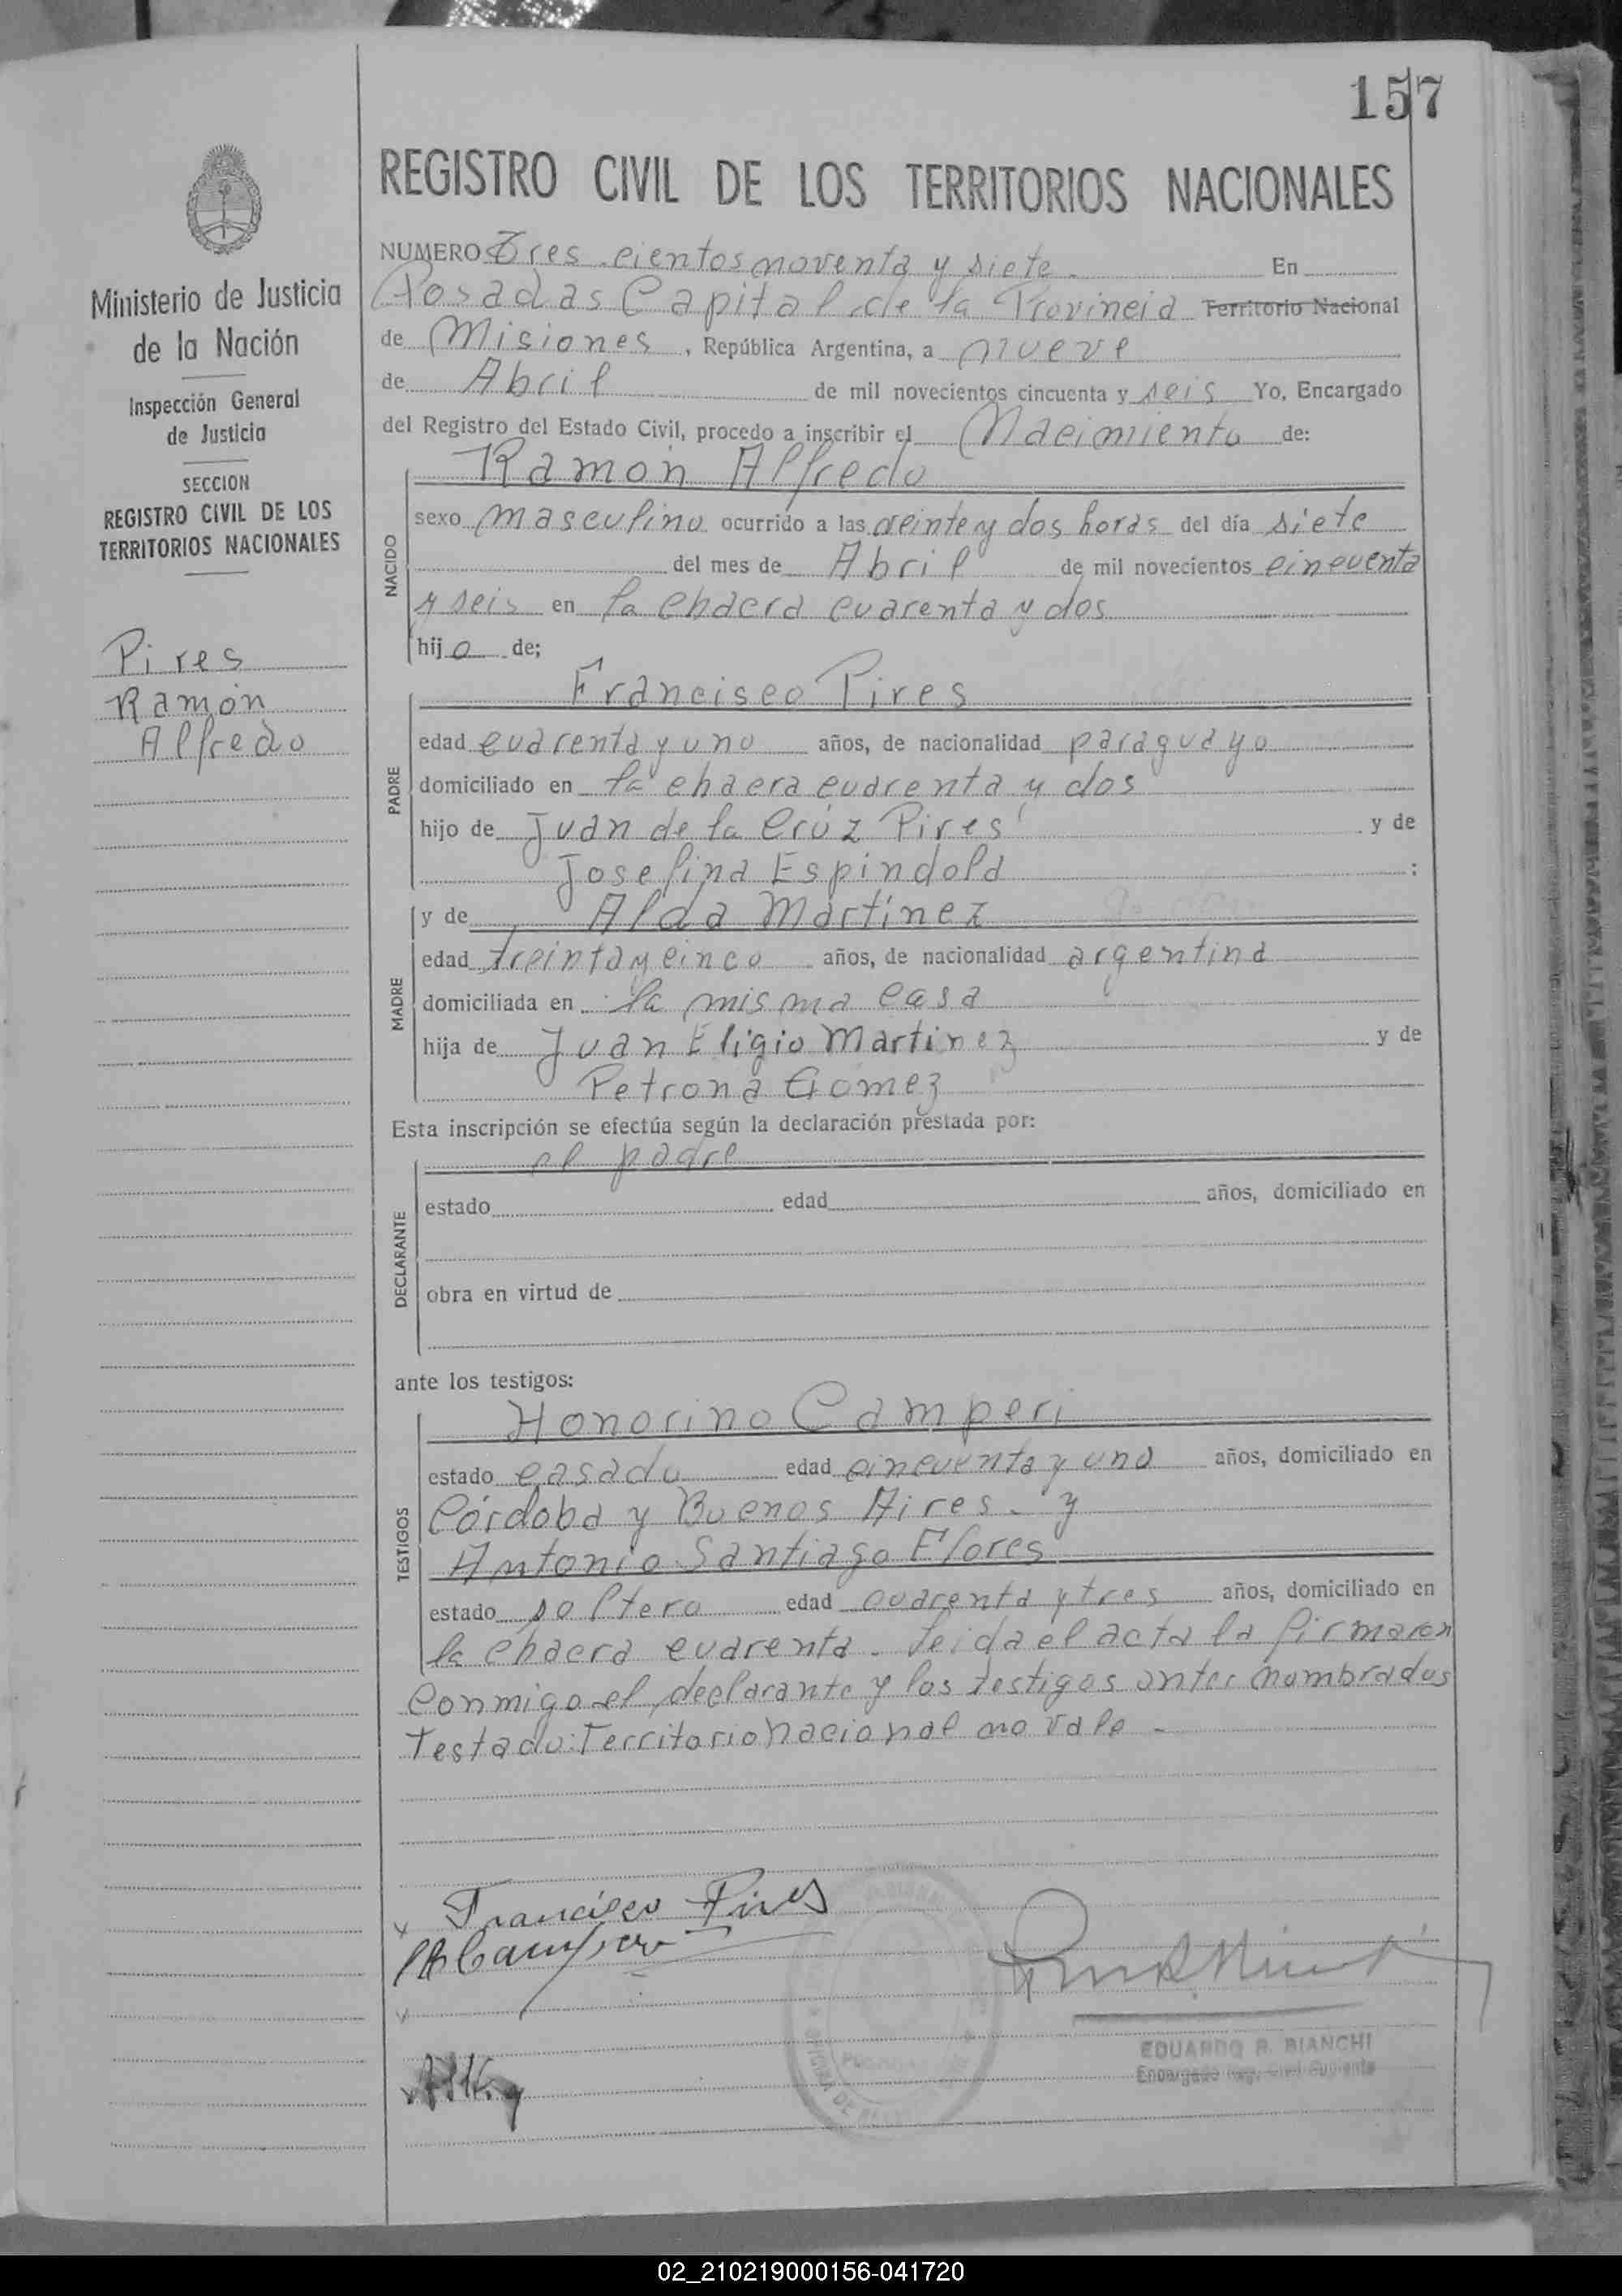 157
REGISTRO CIVIL DE LOS TERRITORIOS NACIONALES
NUMERO Tres cientos noventa y siete. En
Posadas Capital de la Provincia Territorio Nacional
de Misiones, República Argentina, a nueve
de Abril de mil novecientos cincuenta y seis Yo, Encargado
del Registro del Estado Civil, procedo a inscribir el Nacimiento de:
NACIDO
Ramón Alfredo
sexo masculino ocurrido a las veinte y dos horas del día siete
del mes de Abril de mil novecientos cincuenta
y seis en la chacra cuarenta y dos
hijo de;
PADRE
Francisco Pires
edad cuarenta y uno años, de nacionalidad paraguayo
domiciliado en la chacra cuarenta y dos
hijo de Juan de la Cruz Pires y de
Josefina Espindola :
MADRE
y de Alda Martínez
edad treinta y cinco años, de nacionalidad argentina
domiciliada en la misma casa
hija de Juan Eligio Martinez y de
Petrona Gomez
Esta inscripción se efectúa según la declaración prestada por:
DECLARANTE
el padre
estado edad años, domiciliado en
obra en virtud de
ante los testigos:
TESTIGOS
Honorino Camperi
estado casado edad cincuenta y uno años, domiciliado en
Córdoba y Buenos Aires - y
Antonio Santiago Flores
estado soltero edad cuarenta y tres años, domiciliado en
la chacra cuarenta. Leida el acta la firmaron
conmigo el declarante y los testigos antes nombrados
Testado: Territorio nacional no vale -
Francisco Pires
EDUARDO R. BIANCHI
Encargado Reg. Civil Suplente
Ministerio de Justicia
de la Nación
Inspección General
de Justicia
SECCION
REGISTRO CIVIL DE LOS
TERRITORIOS NACIONALES
Pires
Ramón
Alfredo
02_210219000156-041720